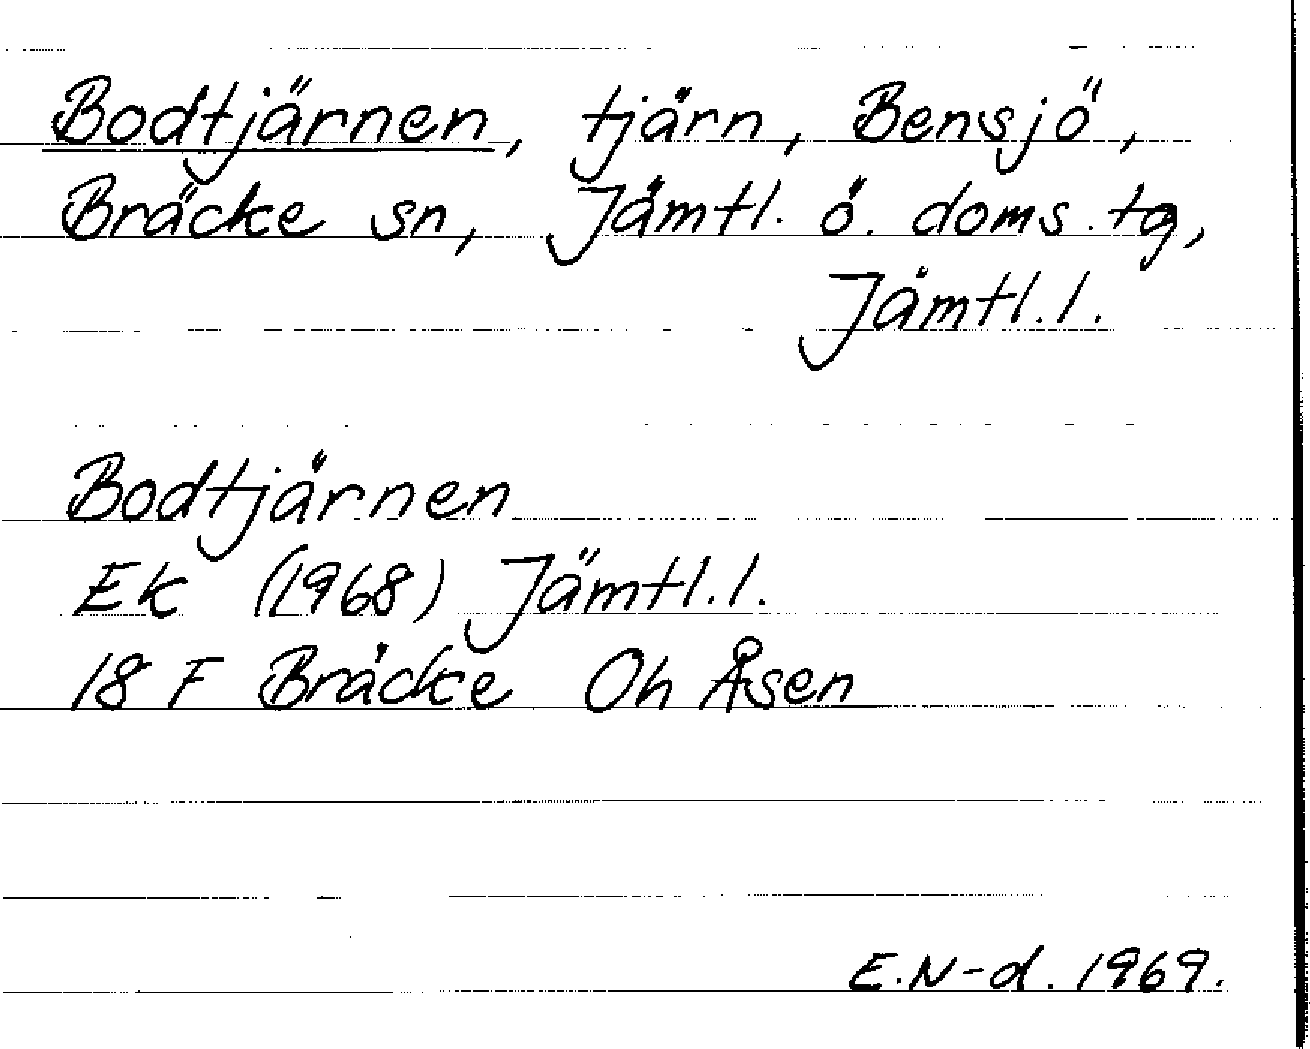 Bodtjärnen, tjärn, Bensjö,
Bräcke sn, Jämtl. ö. doms. tg,
Jämtl. l.
Bodtjärnen
Ek (1968) Jämtl. l.
18 F Bräcke Oh Åsen
E.N-d. 1969.